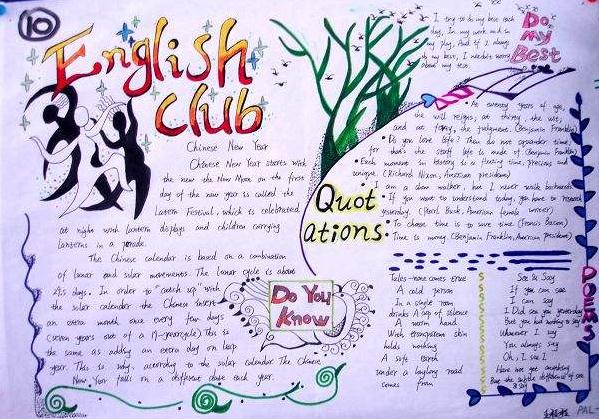 10
English
club
Chinese New Year
Chinese New Year starts with
the new the New Moon on the first
day of the new year is called the
Lantern Festival, which is celebrated
at night with lantern displays and children carrying
lanterns in a parade.
The Chinese calendar is based on a combination
of lunar and solar movements. The lunar cycle is about
29.5 days. In order to "catch up" with
the solar calendar the Chinese insert
an extra month once every few days
(seven years out of a 19-yearcycle) This is
the same as adding an extra day on leap
year. This is why, according to the solar calendar The Chinese
New Year falls on a different date each year.
Do You
Know
I try to do my best each
day, In my work and in
my play, And if I always
do my best, I needn't worry
about my test.
Do
My
Best
Quot
ations:
At twenty years of age,
the will reigns; at thirty, the wit;
and at forty, the judgment. (Benjamin Franklin)
Do you love life? Then do not squander time;
for that's the stuff life is made of (Benjamin Franklin)
Each moment in history is a fleeting time, precious and
unique. (Richard Nixon, American president)
I am a slow walker, but I never walk backwards.
If you want to understand today, you have to research
yesterday. (Pearl Buck, American female writer)
To choose time is to save time (Francis Bacon)
Time is money. (Benjamin Franklin, American president)
Poems
A cold person
In a single room
drinks A cup of silence
A warm hand
With transparent skin
holds nothing
A safe earth
under a laughing road
comes from
See & Say
If you can see
I can say
I Did see you yesterday
But you had nothing to say
Whenever I say
You always say
Oh, I see I
Have not got anything
But the subtle difference of see
& say
PAL